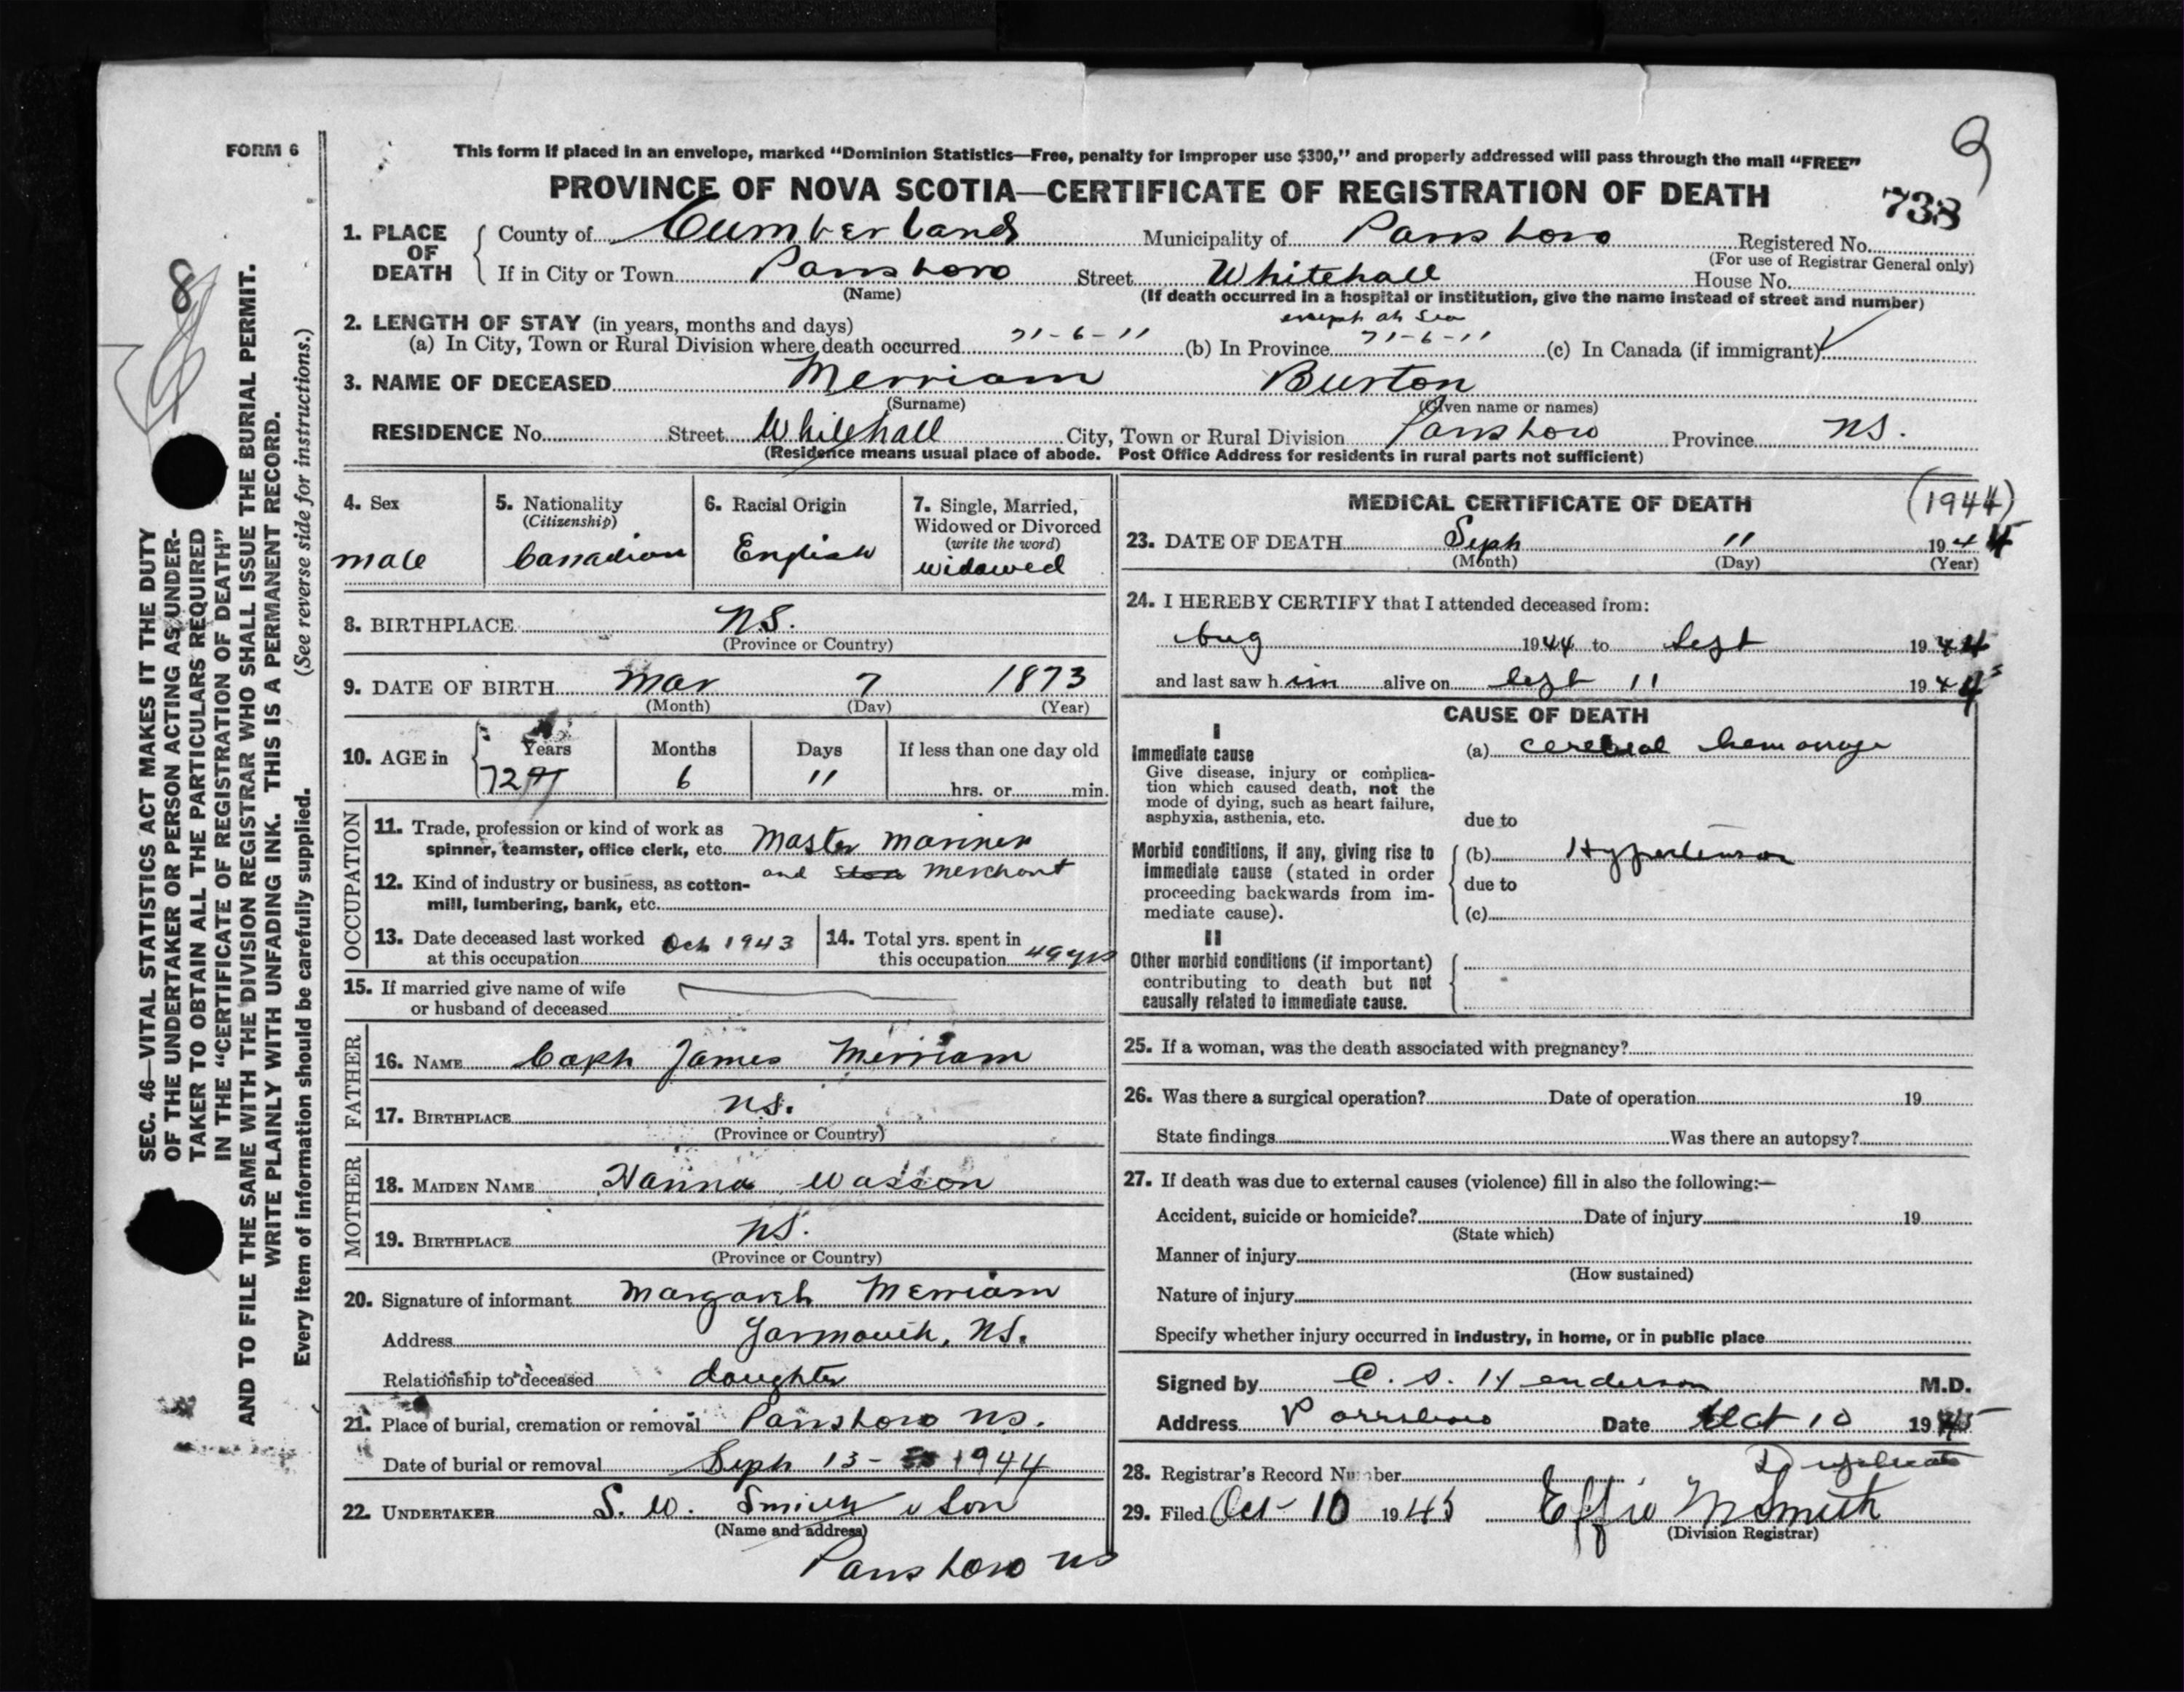 FORM 6
This form if placed in an envelope, marked “Dominion Statistics—Free, penalty for improper use $300,” and properly addressed will pass through the mail “FREE”
PROVINCE OF NOVA SCOTIA—CERTIFICATE OF REGISTRATION OF DEATH
738
1. PLACE OF DEATH County of Cumberland Municipality of Parrsboro Registered No.
(For use of Registrar General only)
If in City or Town Parrsboro Street Whitehall House No.
(Name) (If death occurred in a hospital or institution, give the name instead of street and number)
2. LENGTH OF STAY (in years, months and days) except at Sea
(a) In City, Town or Rural Division where death occurred 71-6-11 (b) In Province 71-6-11 (c) In Canada (if immigrant)
3. NAME OF DECEASED Merriam Burton
(Surname) (Given name or names)
RESIDENCE No. Street Whitehall City, Town or Rural Division Parrsboro Province NS.
(Residence means usual place of abode. Post Office Address for residents in rural parts not sufficient)
4. Sex
male
5. Nationality
(Citizenship)
Canadian
6. Racial Origin
English
7. Single, Married,
Widowed or Divorced
(write the word)
widowed
8. BIRTHPLACE NS.
(Province or Country)
9. DATE OF BIRTH Mar 7 1873
(Month) (Day) (Year)
10. AGE in Years Months Days If less than one day old
72 71 6 11 hrs. or min.
OCCUPATION
11. Trade, profession or kind of work as
spinner, teamster, office clerk, etc. Master Mariner
and Merchant
12. Kind of industry or business, as cotton-
mill, lumbering, bank, etc.
13. Date deceased last worked
at this occupation Oct 1943
14. Total yrs. spent in
this occupation 49 yrs
15. If married give name of wife
or husband of deceased
FATHER
16. NAME Capt James Merriam
17. BIRTHPLACE NS.
(Province or Country)
MOTHER
18. MAIDEN NAME Hanna Wasson
19. BIRTHPLACE NS.
(Province or Country)
20. Signature of informant Margaret Merriam
Address Yarmouth, NS.
Relationship to deceased daughter
21. Place of burial, cremation or removal Parrsboro NS.
Date of burial or removal Sept 13- 1944
22. UNDERTAKER S. W. Smith & Son
(Name and address)
Parrsboro NS
MEDICAL CERTIFICATE OF DEATH (1944)
23. DATE OF DEATH Sept 11 1944
(Month) (Day) (Year)
24. I HEREBY CERTIFY that I attended deceased from:
Aug 1944 to Sept 1944
and last saw him alive on Sept 11 1944
CAUSE OF DEATH
I
Immediate cause
Give disease, injury or complica-
tion which caused death, not the
mode of dying, such as heart failure,
asphyxia, asthenia, etc.
(a) cerebral hemorrage
due to
Morbid conditions, if any, giving rise to
immediate cause (stated in order
proceeding backwards from im-
mediate cause).
(b) Hypertension
due to
(c)
II
Other morbid conditions (if important)
contributing to death but not
causally related to immediate cause.
25. If a woman, was the death associated with pregnancy?
26. Was there a surgical operation? Date of operation 19
State findings Was there an autopsy?
27. If death was due to external causes (violence) fill in also the following:—
Accident, suicide or homicide? Date of injury 19
(State which)
Manner of injury
(How sustained)
Nature of injury
Specify whether injury occurred in industry, in home, or in public place
Signed by C. S. Henderson M.D.
Address Parrsboro Date Oct 10 1945
Duplicate
28. Registrar's Record Number
29. Filed Oct 10 1945 Effie M Smith
(Division Registrar)
8
SEC. 46—VITAL STATISTICS ACT MAKES IT THE DUTY
OF THE UNDERTAKER OR PERSON ACTING AS UNDER-
TAKER TO OBTAIN ALL THE PARTICULARS REQUIRED
IN THE “CERTIFICATE OF REGISTRATION OF DEATH”
AND TO FILE THE SAME WITH THE DIVISION REGISTRAR WHO SHALL ISSUE THE BURIAL PERMIT.
WRITE PLAINLY WITH UNFADING INK. THIS IS A PERMANENT RECORD.
Every item of information should be carefully supplied. (See reverse side for instructions.)